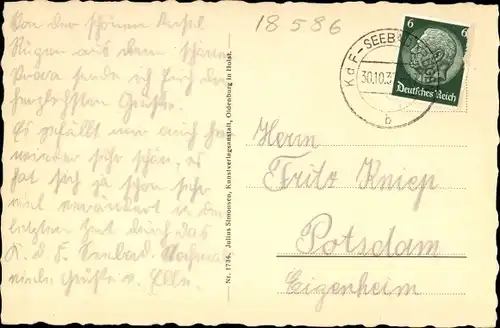 Von der schönen Insel
Rügen aus dem schönen
sende ich Euch die
herzlichsten Grüße.
Es gefällt mir auch hier
wieder sehr schön, es
hat sich ja schon sehr
viel verändert in der
letzten Zeit durch das
K. d. F. Seebad. Nochmals
viele Grüße v. Elli.
18586
Nr. 1736. Julius Simonsen, Kunstverlagsanstalt, Oldenburg in Holst.
KdF-SEEBAD
30.10.3
b
6 6
Deutsches Reich
Herrn
Fritz Kniep
Potsdam
Eigenheim